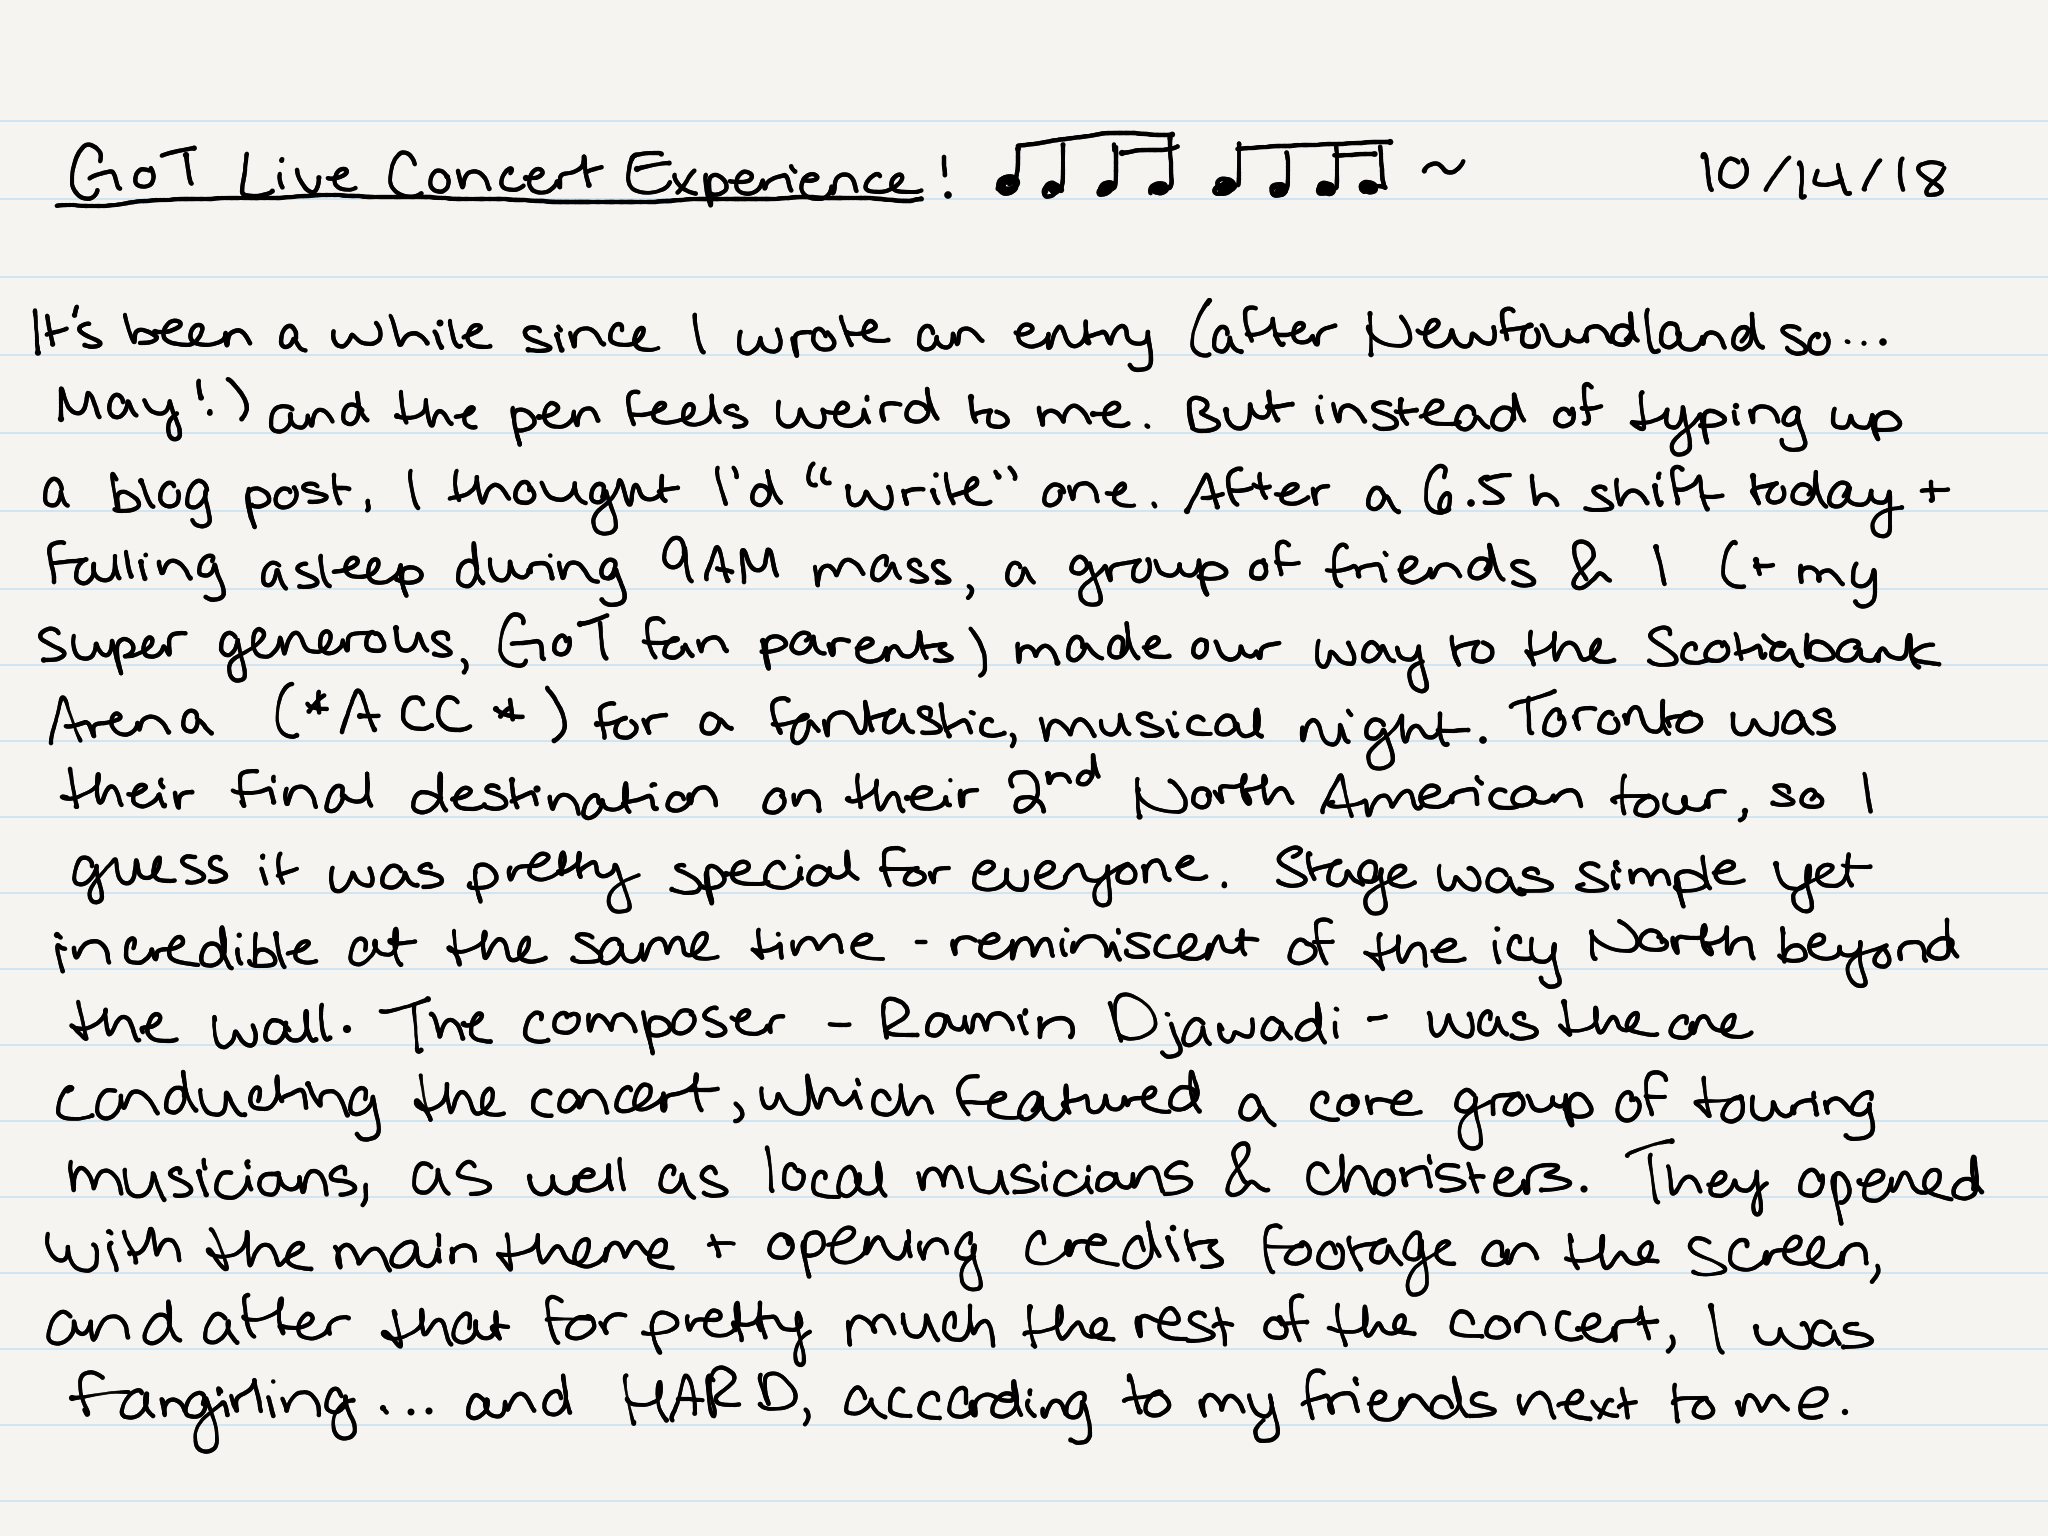 GoT Live Concert Experience! ♫♫ ♫♫ ~ 10/14/18
It's been a while since I wrote an entry (after Newfoundland so...
May!) and the pen feels weird to me. But instead of typing up
a blog post, I thought I'd "write" one. After a 6.5 h shift today +
falling asleep during 9AM mass, a group of friends & I (+ my
super generous, GoT fan parents) made our way to the Scotiabank
Arena (*ACC*) for a fantastic, musical night. Toronto was
their final destination on their 2nd North American tour, so I
guess it was pretty special for everyone. Stage was simple yet
incredible at the same time - reminiscent of the icy North beyond
the wall. The composer - Ramin Djawadi - was the one
conducting the concert, which featured a core group of touring
musicians, as well as local musicians & choristers. They opened
with the main theme + opening credits footage on the screen,
and after that for pretty much the rest of the concert, I was
fangirling... and HARD, according to my friends next to me.